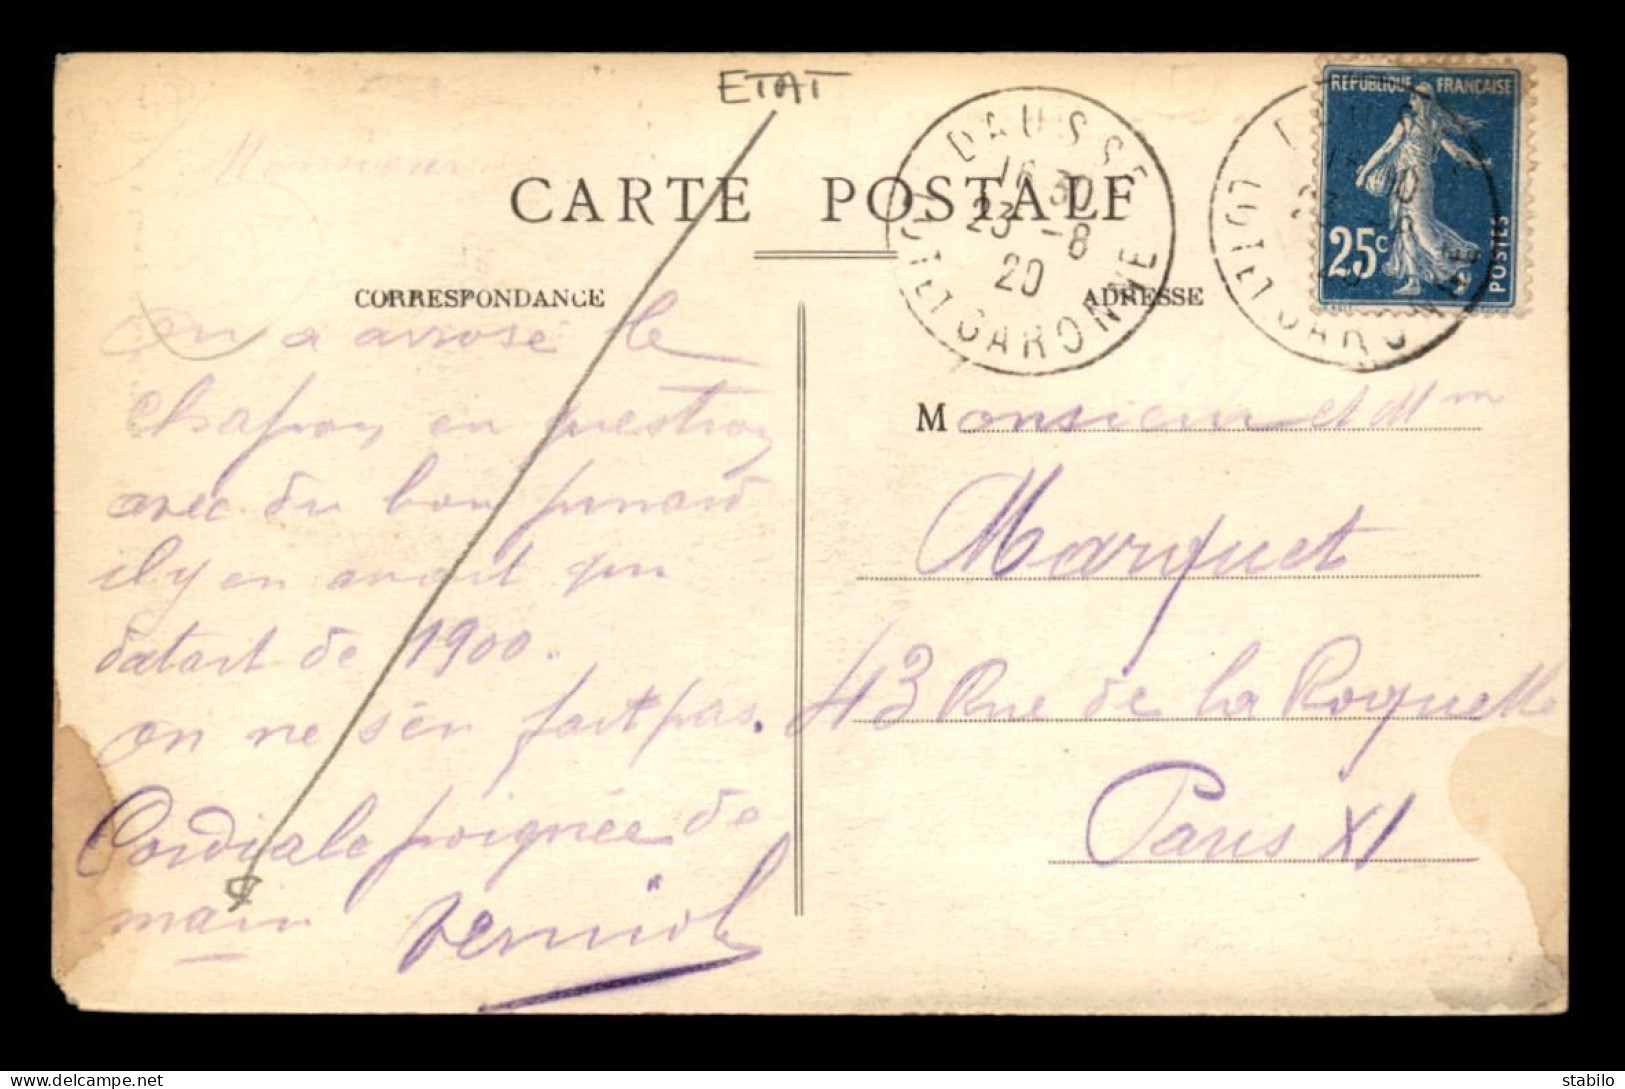 ETAT
DAUSSE
16 30
23 -8
20
LOT ET GARONNE
LOT ET GARONNE
REPUBLIQUE FRANÇAISE
25c
POSTES
CARTE POSTALE
CORRESPONDANCE
ADRESSE
on a arrosé le
chapon en question
avec du bon pinard
il y en avait qui
datait de 1900.
on ne s'en fait pas.
Cordiale poignée de
main
Monsieur et Mm
Marquet
43 Rue de la Roquette
Paris XI